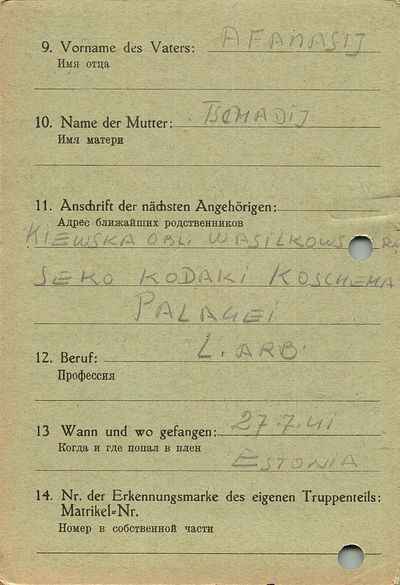 9. Vorname des Vaters: AFANASIJ
Имя отца
10. Name der Mutter: TSCHADIJ
Имя матери
11. Anschrift der nächsten Angehörigen:
Адрес ближайших родственников
KIEWSKA OBLI WASILKOWS
SEKO KODAKI KOSCHEMA
PALAGEI
12. Beruf: L. ARB.
Профессия
13 Wann und wo gefangen: 27.7.41
Когда и где попал в плен
ESTONIA
14. Nr. der Erkennungsmarke des eigenen Truppenteils:
Matrikel-Nr.
Номер в собственной части